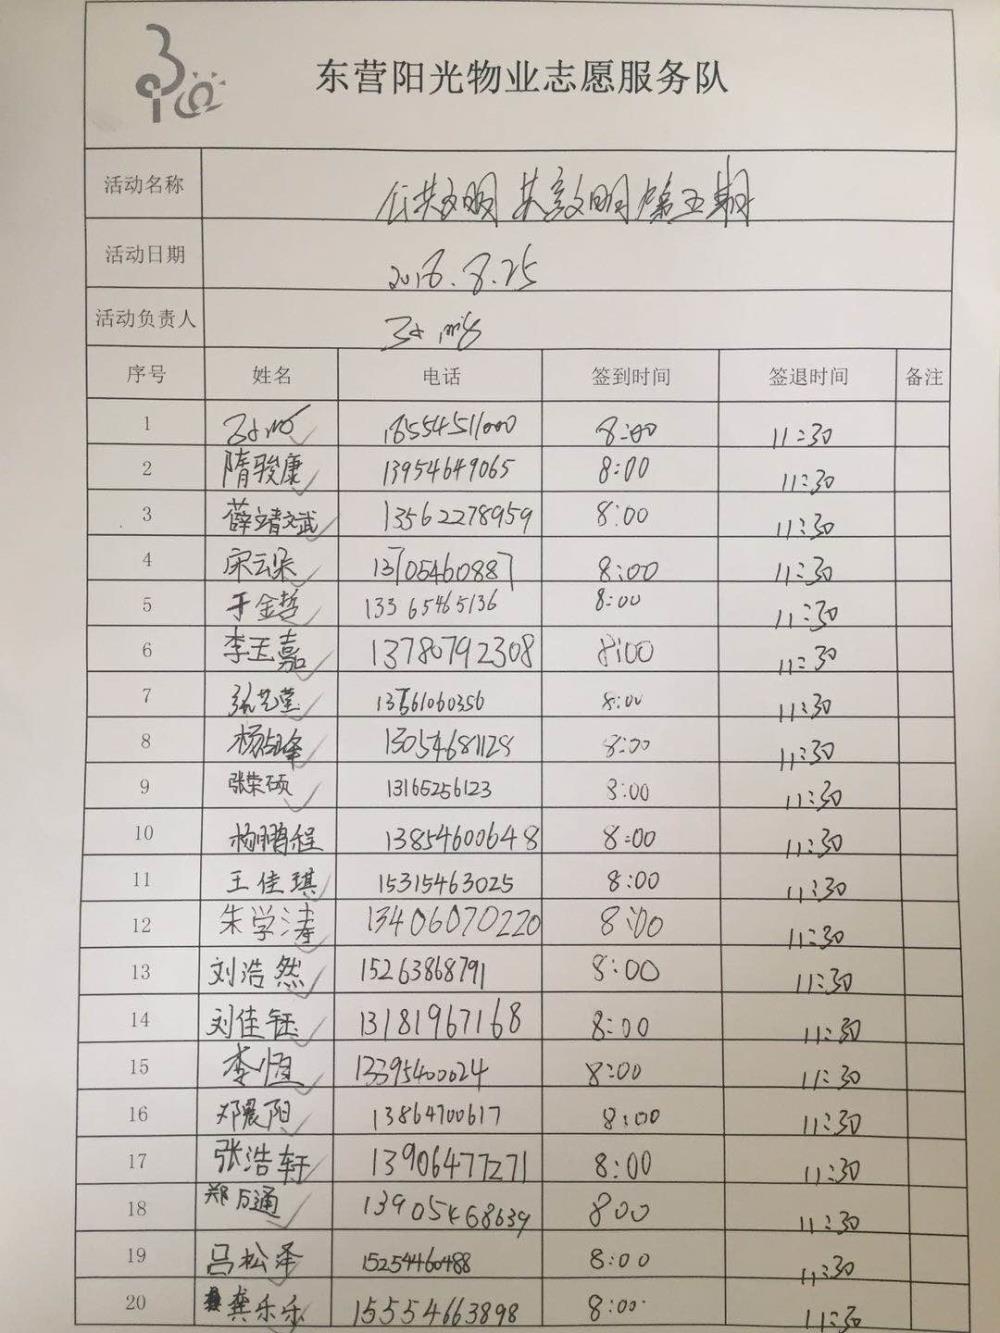 东营阳光物业志愿服务队
活动名称 公共文明 共文明 第五期
活动日期 2016.8.25
活动负责人
序号 姓名 电话 签到时间 签退时间 备注
1 18554511000 8:00 11:30
2 隋骏康 13954649065 8:00 11:30
3 薛靖斌 13562278959 8:00 11:30
4 宋云朵 13705460887 8:00 11:30
5 于金哲 13365465136 8:00 11:30
6 李玉嘉 13780792308 8:00 11:30
7 张艺莹 8:00 11:30
8 杨占峰 13054681128 8:00 11:30
9 张荣硕 13165256123 8:00 11:30
10 杨鹏程 13854600648 8:00 11:30
11 王佳琪 15315463025 8:00 11:30
12 朱学涛 13406070220 8:00 11:30
13 刘浩然 15263868791 8:00 11:30
14 刘佳钰 13181967168 8:00 11:30
15 李恒 13395400024 8:00 11:30
16 邓晨阳 13864700617 8:00 11:30
17 张浩轩 13906477271 8:00 11:30
18 郑万通 13905468639 800 11:30
19 吕松泽 15254460488 8:00 11:30
20 龚乐乐 15554663898 8:00 11:30